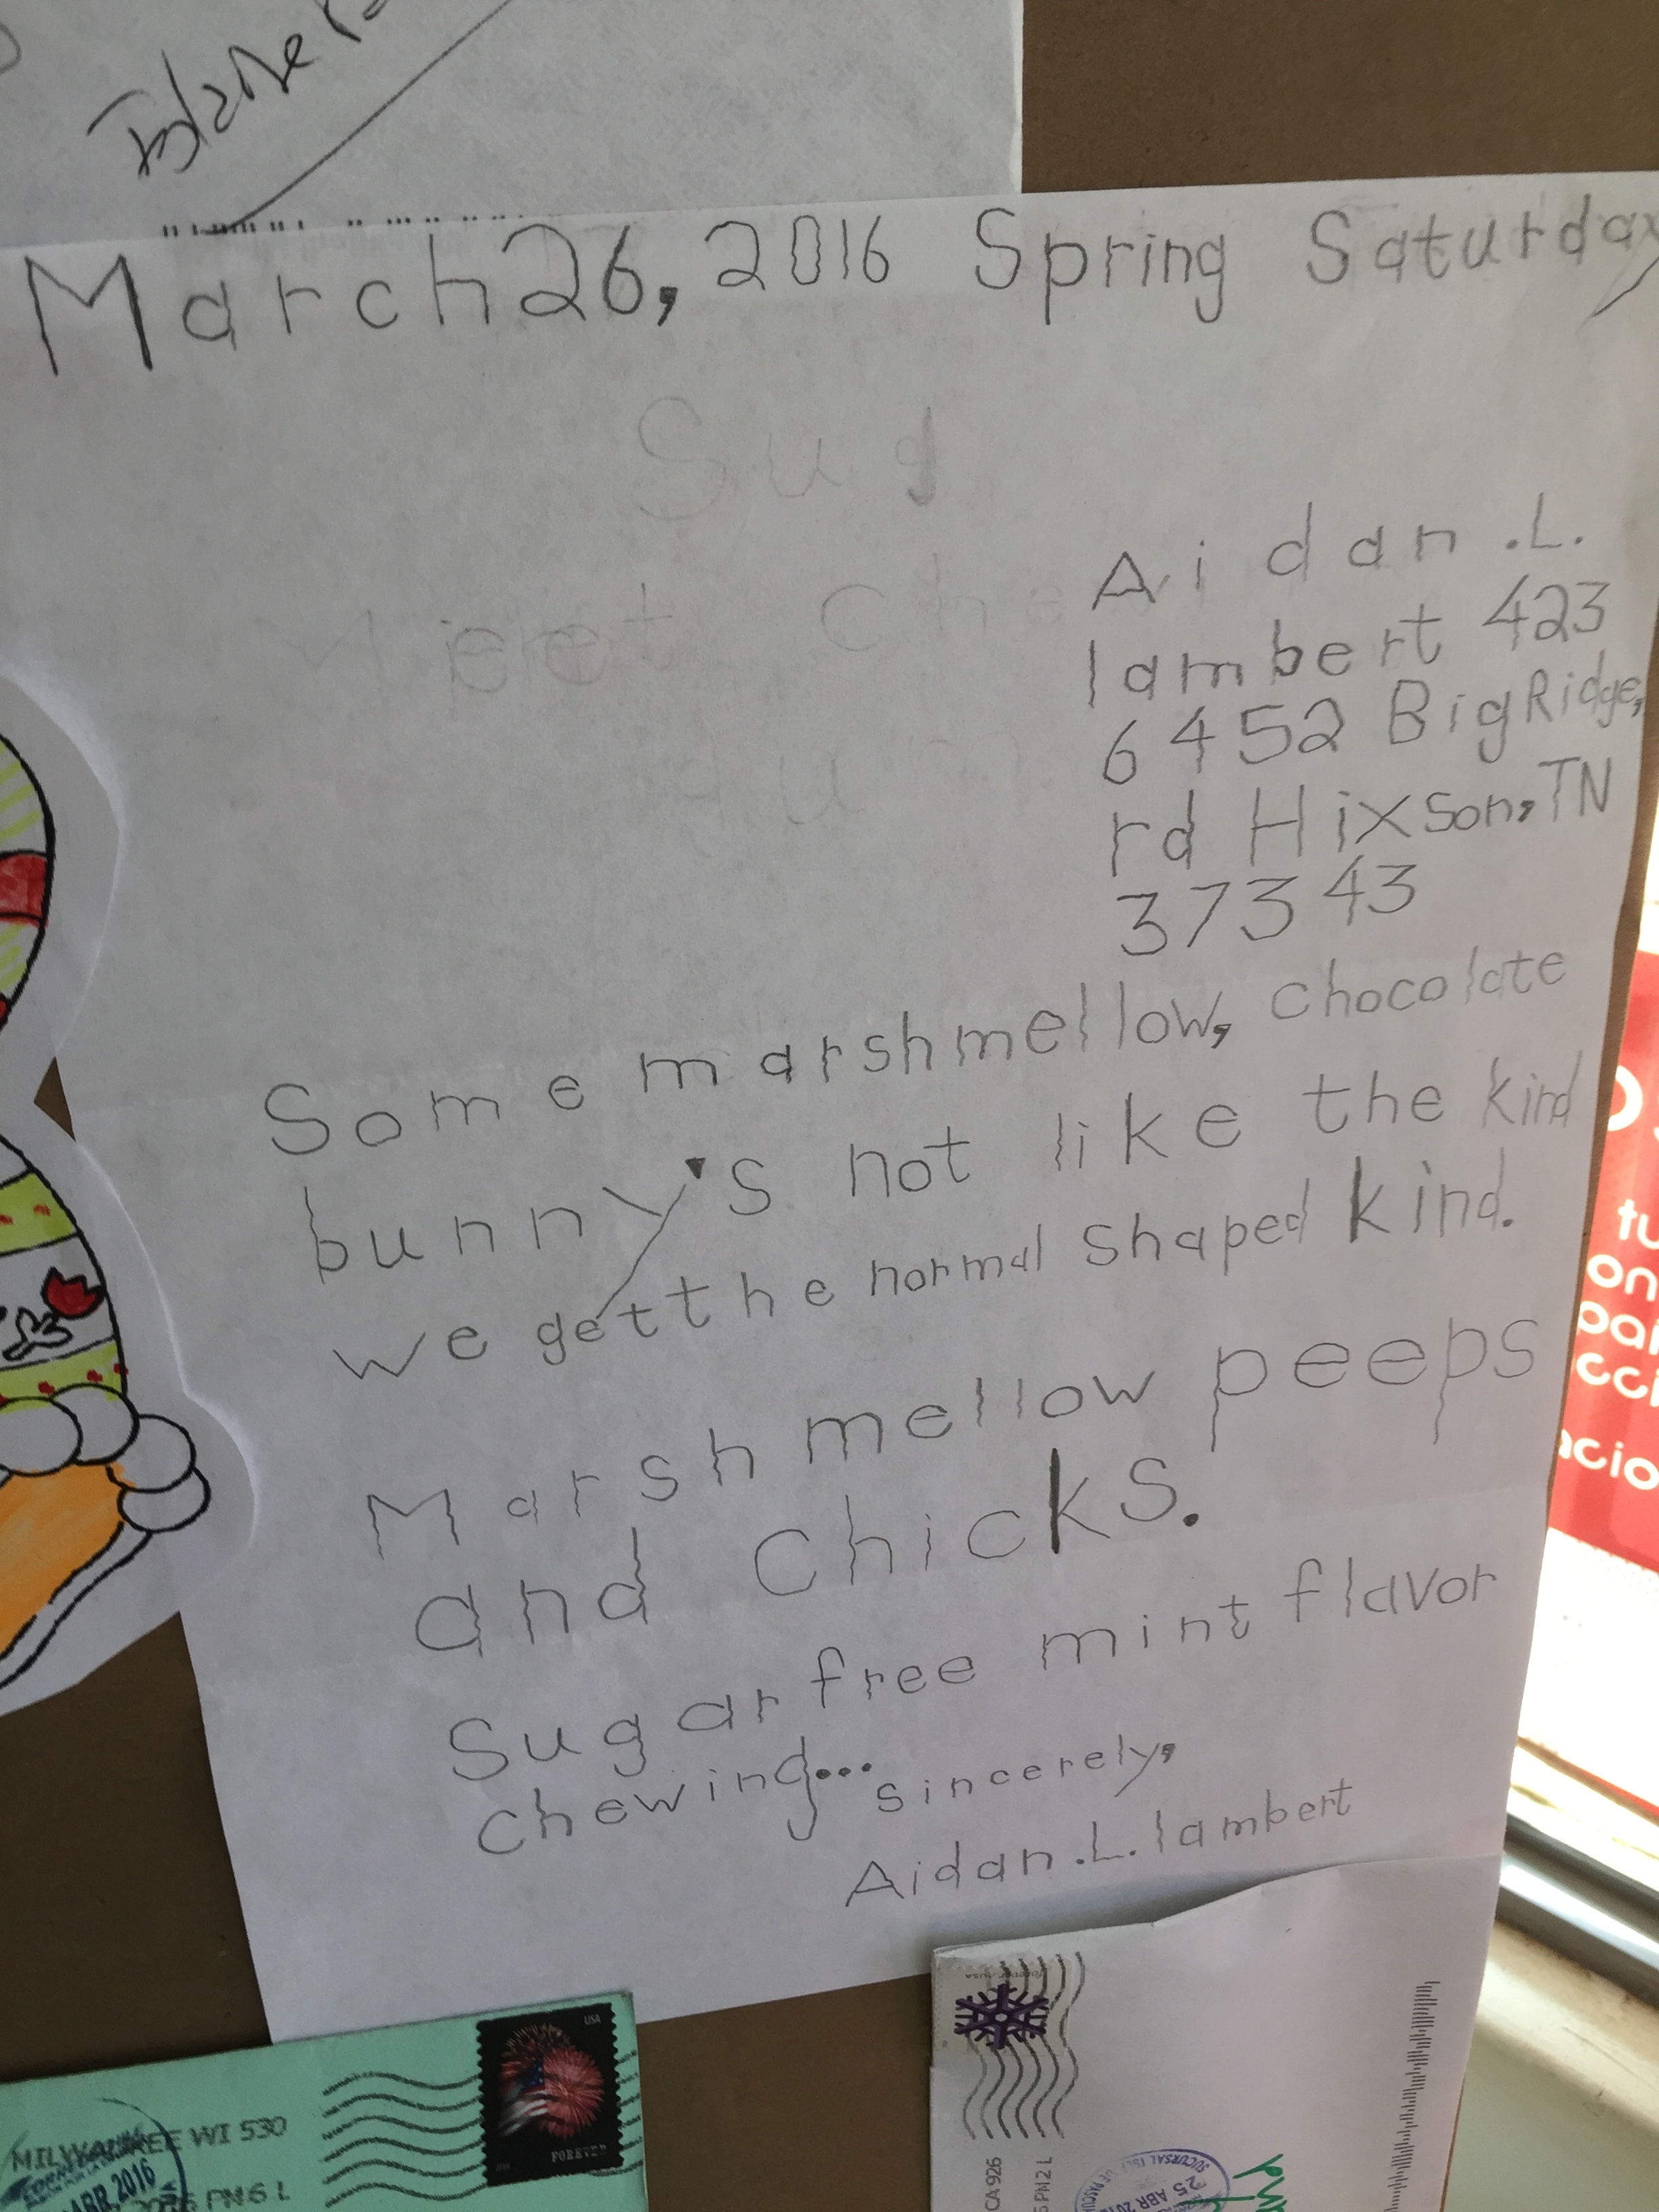 March 26, 2016 Spring Saturday
Sug
Aidan .L.
lambert 423
6452 Big Ridge,
rd Hixson, TN
37343
Some marshmellow, chocolate
bunny's not like the kind
we get the normal shaped kind.
Marshmellow peeps
and Chicks.
Sugar free mint flavor
chewing...
sincerely,
Aidan .L. lambert
USA
FOREVER
MILWAUKEE WI 530
ABR 2016
PM 6 L
CA 926
PM 2 L
25 ABR
tu
on
pai
cci
acio